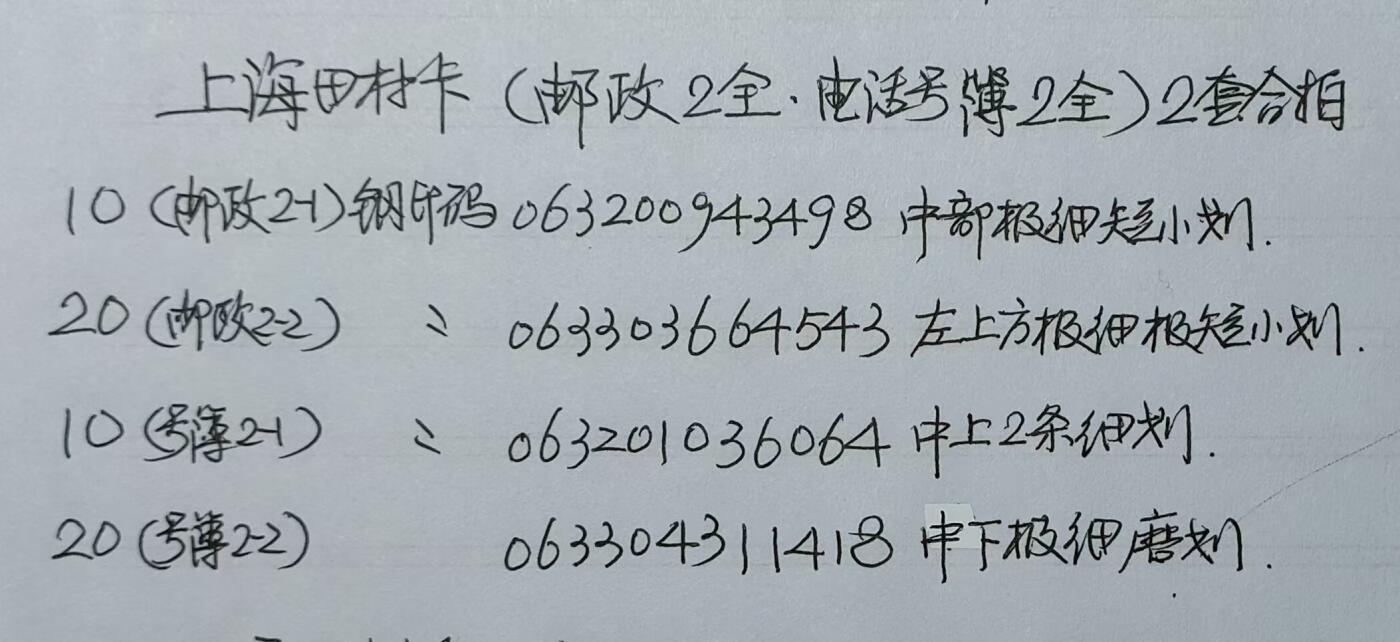 上海田村卡（邮政2全.电话号簿2全）2套合拍
10（邮政2-1）钢印码063200943498 中部极细短小划.
20（邮政2-2） 〃 063303664543 左上方极细极短小划.
10（号簿2-1） 〃 063201036064 中上2条细划.
20（号簿2-2） 063304311418 中下极细磨划.